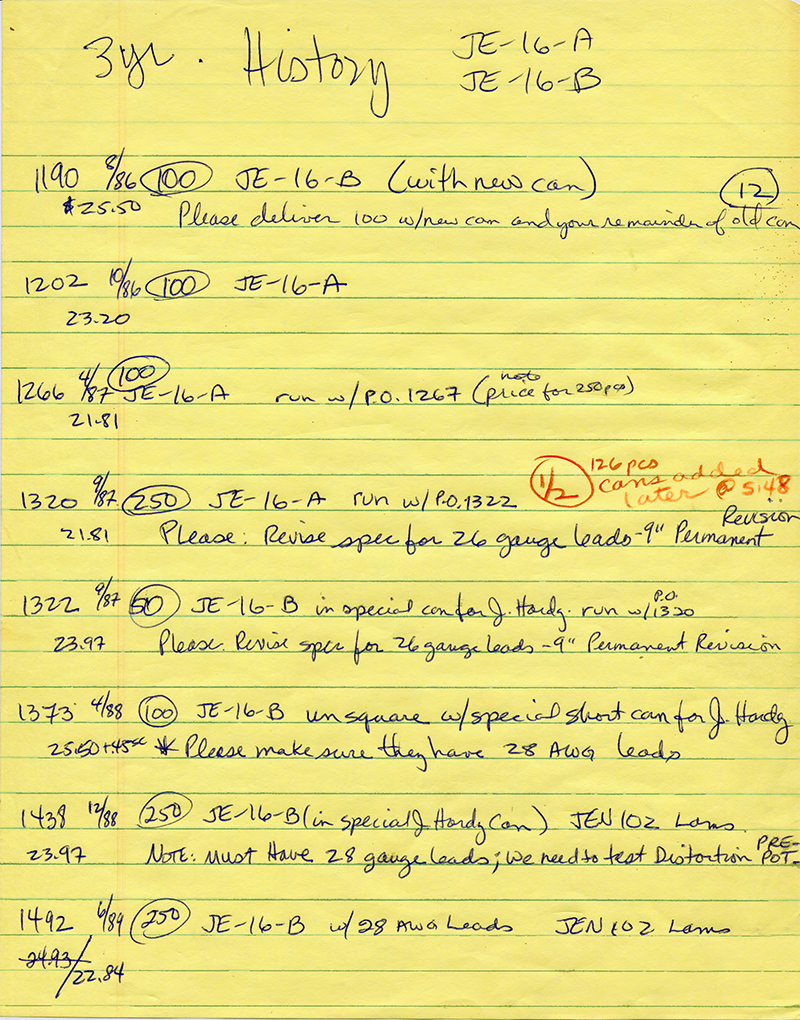 3yr. History JE-16-A
JE-16-B
1190 8/86 100 JE-16-B (with new can) 12
$25.50 Please deliver 100 w/new can and your remainder of old can
1202 10/86 100 JE-16-A
23.20
1266 4/87 100 JE-16-A run w/P.O. 1267 (note price for 250 pcs)
21.81
1/2 126 pcs
cans added
later @ 5.48
1320 9/87 250 JE-16-A run w/P.O. 1322
21.81 Please: Revise spec for 26 gauge leads-9" Permanent Revision
1322 9/87 50 JE-16-B in special can for J. Hardy. run w/P.O. 1320
23.97 Please: Revise spec for 26 gauge leads-9" Permanent Revision
1373 4/88 100 JE-16-B unsquare w/special short can for J. Hardy
25.50+45 * Please make sure they have 28 AWG leads
1438 12/88 250 JE-16-B (in special J Hardy Can) JEN 102 Lams.
23.97 NOTE: Must Have 28 gauge leads; we need to test Distortion PRE-POT.
1492 6/89 250 JE-16-B w/28 AWG Leads JEN 102 Lams
24.93/22.84